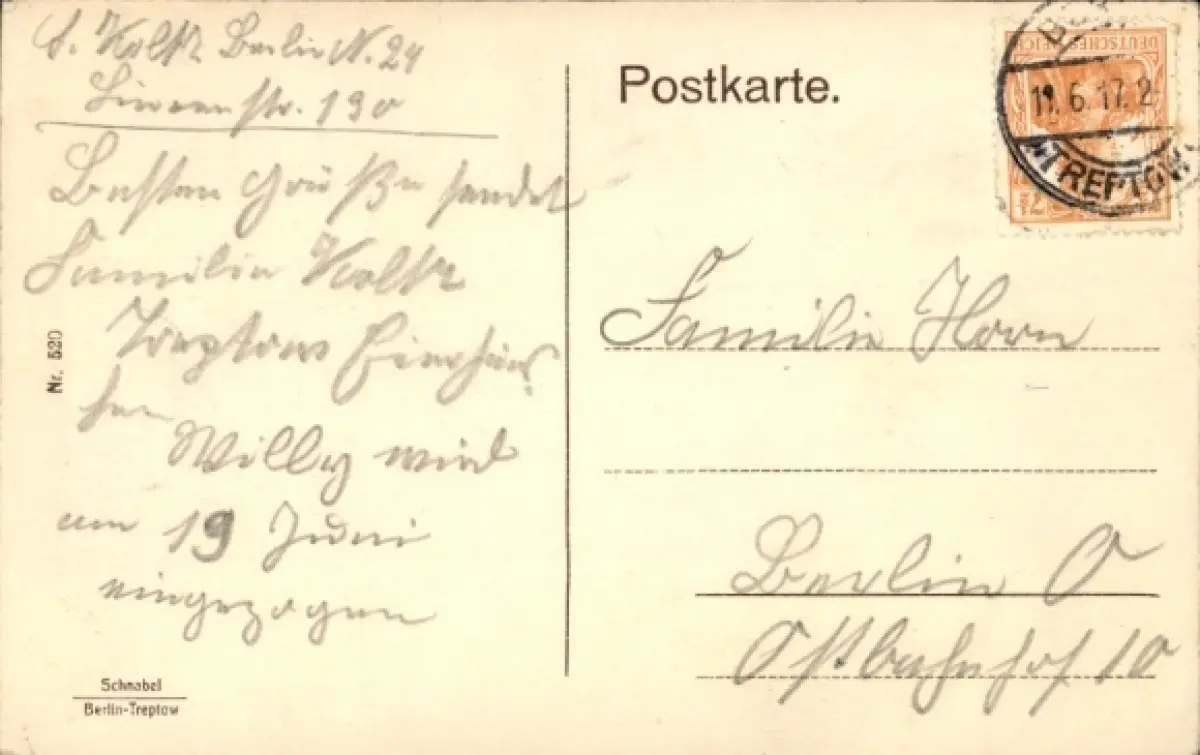 Berlin N. 24
Linienstr. 130
Besten Grüße sendet
Familie
Treptow
Willy wird
am 19 Juni
eingezogen
Nr. 520
Schnabel
Berlin-Treptow
Postkarte.
DEUTSCHES REICH
11.6.17.2
TREPTOW
Familie Horn
Berlin O
Ostbahnhof 10